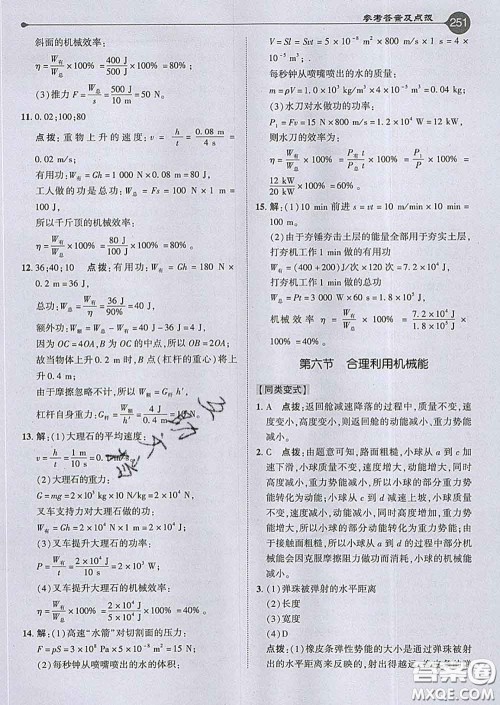 参考答案及点拨 251
斜面的机械效率:
η = W有/W总 = 500 J/500 J × 100% = 80%。
(3)推力 F = W总/s = 500 J/10 m = 50 N。
11. 0.02;100;80
点拨:重物上升的速度: v = h/t = 0.08 m/4 s =
0.02 m/s;
有用功: W有 = Gh = 1 000 N × 0.08 m = 80 J,
工人做的功是总功: W总 = Fs = 100 N × 1 m =
100 J,
所以千斤顶的机械效率:
η = W有/W总 × 100% = 80 J/100 J × 100% = 80%。
12. 36;40;10 点拨:有用功: W有 = Gh = 180 N ×
0.2 m = 36 J,
总功: W总 = W有/η = 36 J/90% = 40 J,
额外功: W额 = W总 - W有 = 40 J - 36 J = 4 J,
因为 OC = 4OA,BC = 2OC,所以 OB = 2OA。
当物体上升 0.2 m 时,B 点(杠杆的重心)将上升
0.4 m,
由于摩擦忽略不计,所以,W额 = G杆 h′,
杠杆自身重力: G杆 = W额/h′ = 4 J/0.4 m = 10 N。
13. 解:(1)大理石的平均速度:
v = s/t = 2 m/10 s = 0.2 m/s。
(2)大理石的重力:
G = mg = 2 × 10³ kg × 10 N/kg = 2 × 10⁴ N,
叉车支持力对大理石做的功:
W有 = Gh = 2 × 10⁴ N × 2 m = 4 × 10⁴ J。
(3)叉车提升大理石的功率:
P有 = W有/t = 4 × 10⁴ J/10 s = 4 × 10³ W。
(4)叉车提升大理石的机械效率:
η = W有/W总 × 100% = 2 × 10⁴ J/5 × 10⁴ J × 100% = 80%。
14. 解:(1)高速“水箭”对切割面的压力:
F = pS = 3 × 10⁸ Pa × 5 × 10⁻⁸ m² = 15 N。
(2)每秒钟从喷嘴喷出的水的体积:
V = Sl = Svt = 5 × 10⁻⁸ m² × 800 m/s × 1 s =
4 × 10⁻⁵ m³,
每秒钟从喷嘴喷出的水的质量:
m = ρV = 1.0 × 10³ kg/m³ × 4 × 10⁻⁵ m³ = 0.04 kg;
(3)水刀对水做的功的功率:
P₁ = Fv = 15 N × 800 m/s = 1.2 × 10⁴ W = 12 kW,
则水刀的效率:
12 kW/20 kW × 100% = 60%。
15. 解:(1)10 min 前进 s = vt = 10 m/min × 10 min =
100 m。
(2)由于夯锤夯击土层的能量全部用于夯实土层,
打夯机工作 1 min 做的有用功
打夯机工作 1 min 做的总功
W总 = Pt = 3 000 W × 60 s = 1.8 × 10⁵ J
第六节 合理利用机械能
【同类变式】
1. A 点拨:返回舱减速降落的过程中,质量不变,速
度变小,高度变小,则返回舱的动能变小,重力势能
变小。
2. C 点拨:由题意可知,路面粗糙,小球从 a 到 c 加
速下滑,小球质量不变,速度变大,高度变小,所以小
球的动能变大,重力势能变小,所以小球的部分重力
势能转化为动能;小球从 c 到 d 减速上坡,小球质量
不变,速度变小,高度变高,所以小球的动能变小,重
力势能变大,所以小球的部分动能转化为重力势能;由
于接触面粗糙,所以小球从 a 到 d 的过程中部分机
械能会因克服摩擦阻力做功而消耗,所以机械能
减小。
3. (1)弹珠被弹射的水平距离
(2)长度
(3)宽度
(4)D
点拨:(1)橡皮条弹性势能的大小是通过弹珠被弹射
出的水平距离来反映的,射得越远
MXQE.COM